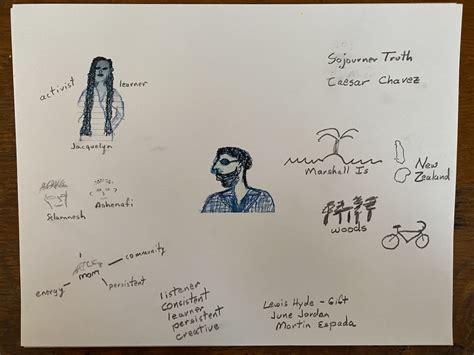 Sojourner Truth
Caesar Chavez
activist
learner
Jacquelyn
Marshall Is
New
Zealand
Selamnesh
Ashenafi
woods
community
mom
energy
persistent
listener
consistent
learner
persistent
creative
Lewis Hyde - Gift
June Jordan
Martin Espada